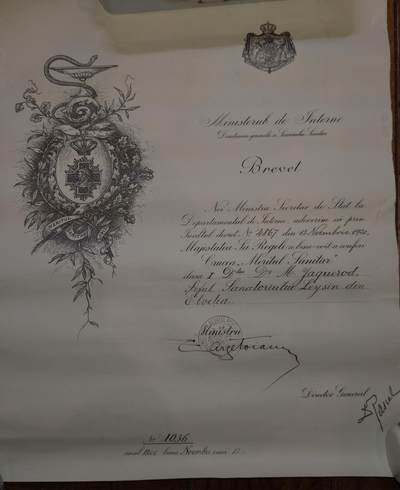 Ministerul de Interne
Direcțiunea generală a Serviciului Sanitar
Brevet
Noi Ministru Secretar de Stat la
Departamentul de Interne, adeverim că prin
Înaltul decret No 4167 din 12 Noembrie 1920,
Majestatea Sa Regele a bine-voit a conferi
Crucea „Meritul Sanitar"
clasa I D-lui Dr M. Jaquerod
Șeful Sanatoriului Leysin din
Elveția
Ministru
Argetoianu
Director General
No 1036
anul luna Noembr. ziua